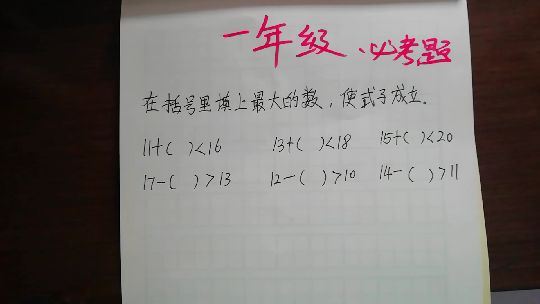 一年级、必考题
在括号里填上最大的数，使式子成立。
11+( )<16 13+( )<18 15+( )<20
17-( )>13 12-( )>10 14-( )>11